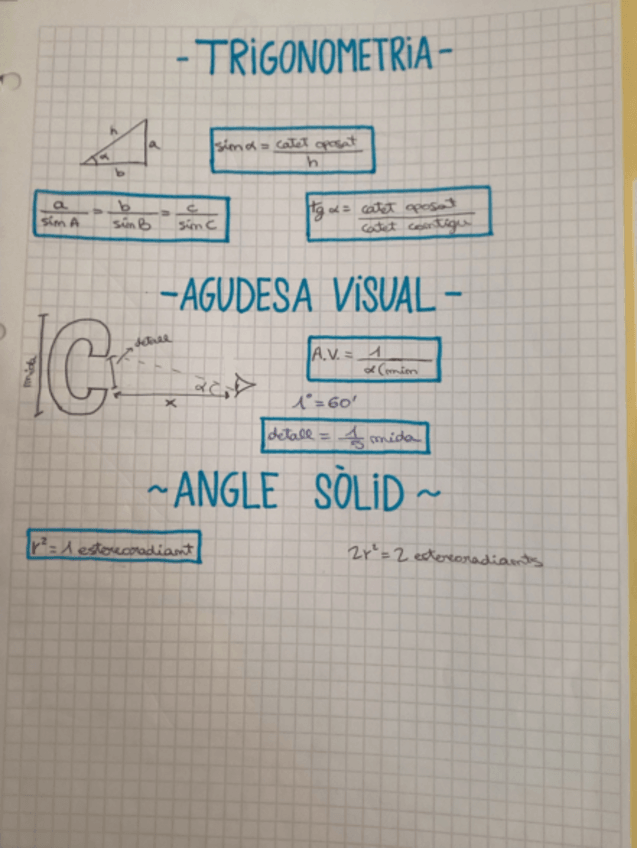 - TRiGONOMETRiA -
h
a
α
b
sin α = catet oposat / h
a / sin A = b / sin B = c / sin C
tg α = catet oposat / catet contigu
- AGUDESA ViSUAL -
detall
mida
α
x
A.V. = 1 / α (min
1° = 60'
detall = 1/5 mida
~ ANGLE SÒLiD ~
r² = 1 estereoradiant
2r² = 2 estereoradiants